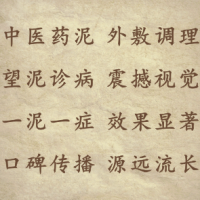 中医药泥 外敷调理
望泥诊病 震撼视觉
一泥一症 效果显著
口碑传播 源远流长